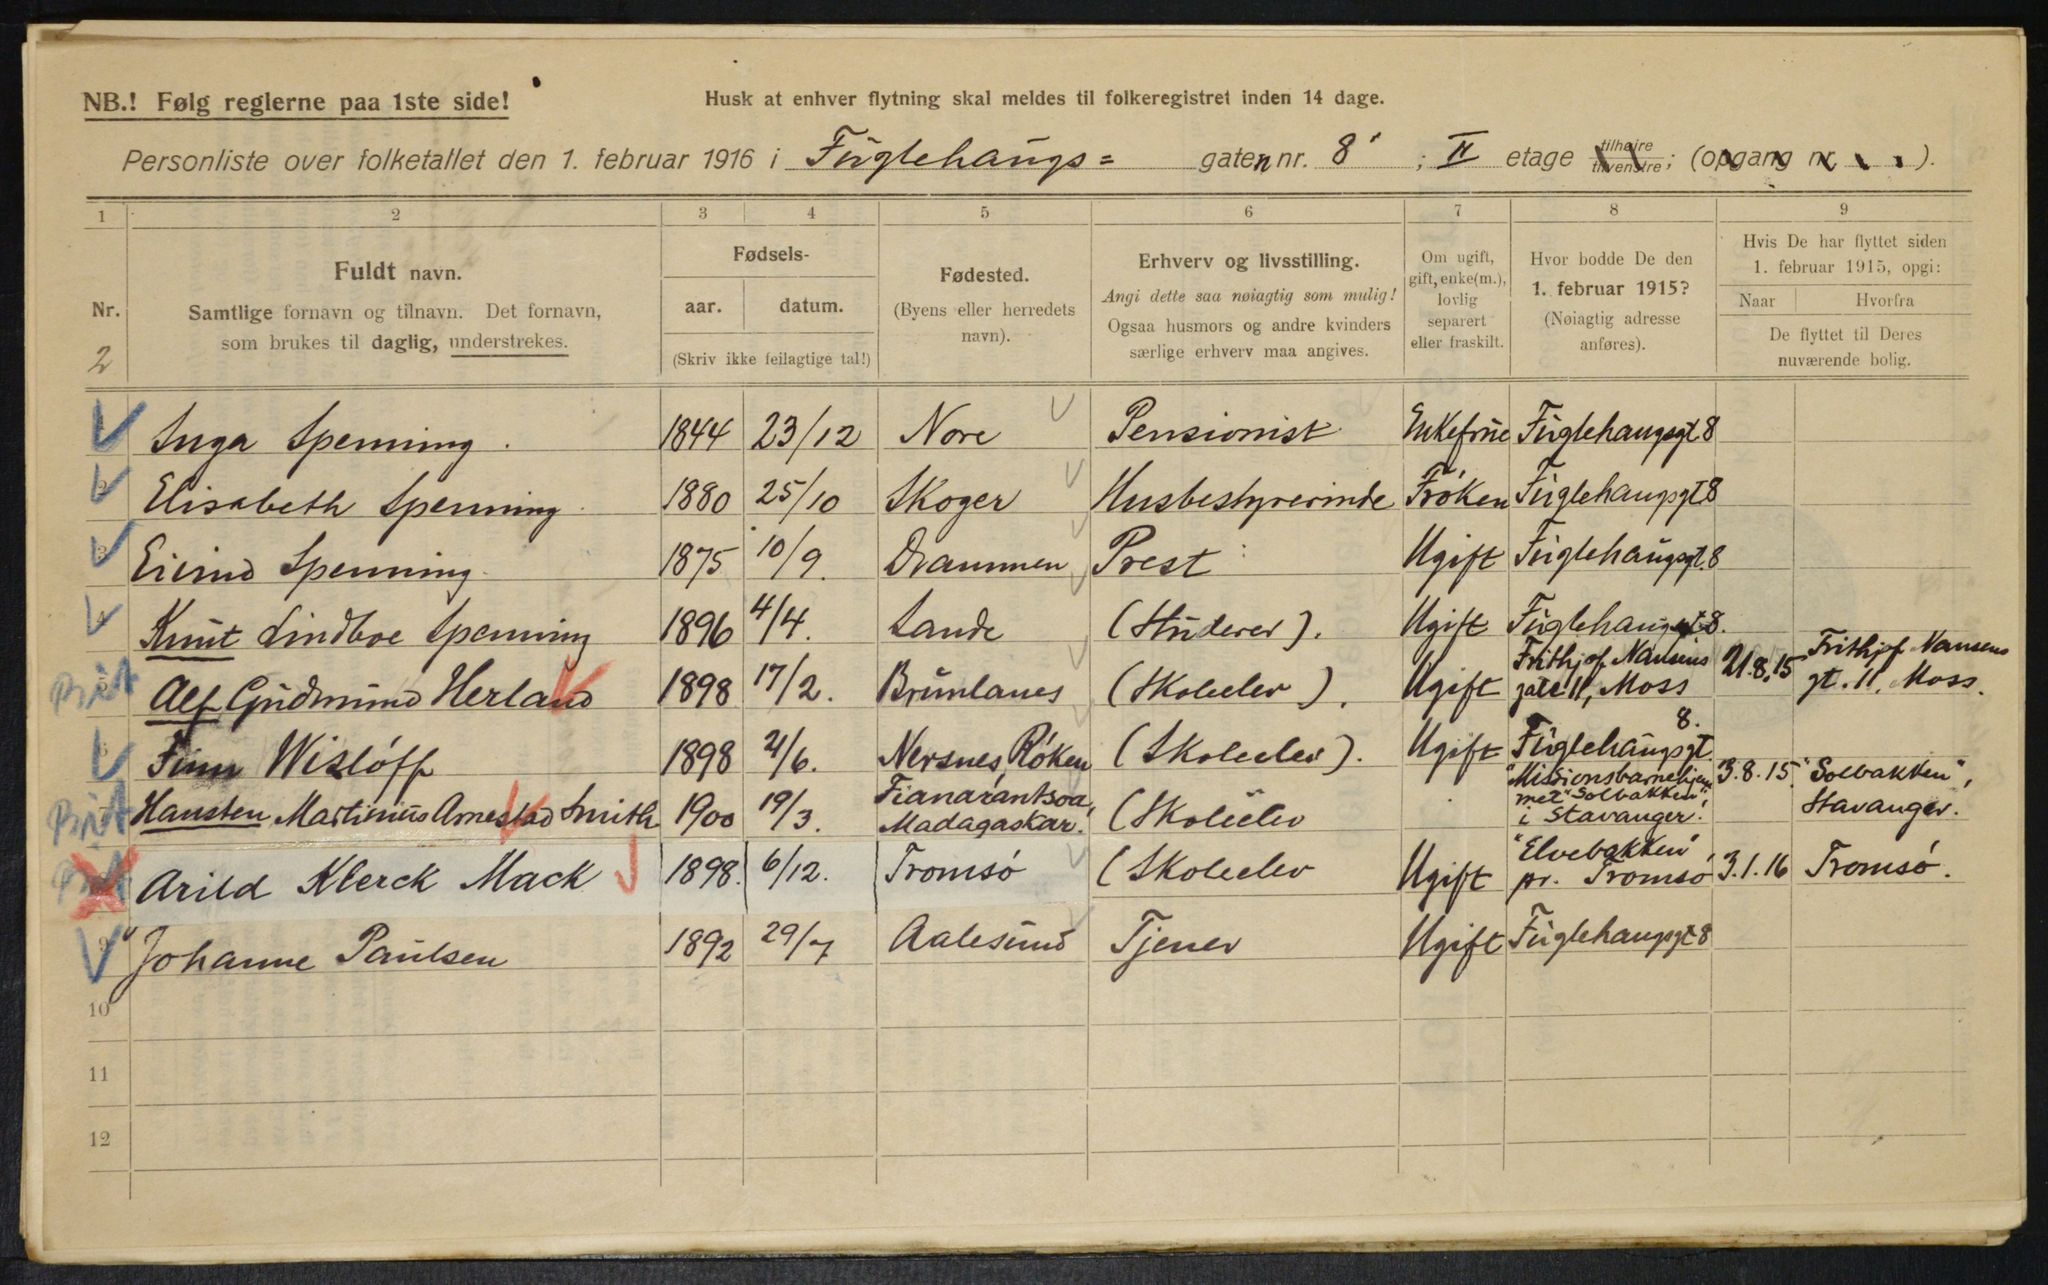 NB.! Følg reglerne paa 1ste side!
Husk at enhver flytning skal meldes til folkeregistret inden 14 dage.
Personliste over folketallet den 1. februar 1916 i Fuglehaugs= gaten nr. 8 ; II etage tilhøire tilvenstre; (opgang nr. ).
1 2 3 4 5 6 7 8 9
Nr.
2
Fuldt navn.
Samtlige fornavn og tilnavn. Det fornavn,
som brukes til daglig, understrekes.
Fødsels-
aar. datum.
(Skriv ikke feilagtige tal!)
Fødested.
(Byens eller herredets
navn).
Erhverv og livsstilling.
Angi dette saa nøiagtig som mulig!
Ogsaa husmors og andre kvinders
særlige erhverv maa angives.
Om ugift,
gift, enke(m.),
lovlig
separert
eller fraskilt.
Hvor bodde De den
1. februar 1915?
(Nøiagtig adresse
anføres).
Hvis De har flyttet siden
1. februar 1915, opgi:
Naar Hvorfra
De flyttet til Deres
nuværende bolig.
1 Inga Spenning. 1844 23/12 Nore Pensionist Enkefrue Fuglehaugsgt 8
2 Elisabeth Spenning 1880 25/10 Skoger Husbestyrerinde Frøken Fuglehaugsgt. 8
3 Eivind Spenning 1875 10/9. Drammen Prest Ugift Fuglehaugsgt. 8
4 Knut Lindboe Spenning 1896 4/4. Sande (Studerer). Ugift Fuglehaugsgt. 8.
Alf Gudmund Herland 1898 17/2. Brunlanes (Skoleelev). Ugift Frithjof Nansens gate 11, Moss 21.8.15 Frithjof Nansens gt. 11, Moss.
Finn Wisløff 1898 2/6. Nersnes, Røken (Skoleelev). Ugift Fuglehaugsgt. 8.
Hansten Martinius Arnestad Smith 1900 19/3. Fianarantsoa, Madagaskar. (Skoleelev "Missionsbarnehjemmet "Solbakken", i Stavanger. 3.8.15. "Solbakken", Stavanger.
Arild Klerck Mack 1898. 6/12. Tromsø (Skoleelev Ugift "Elvebakken" pr. Tromsø 3.1.16 Tromsø.
9 Johanne Paulsen 1892 29/7 Aalesund Tjener Ugift Fuglehaugsgt 8
10
11
12